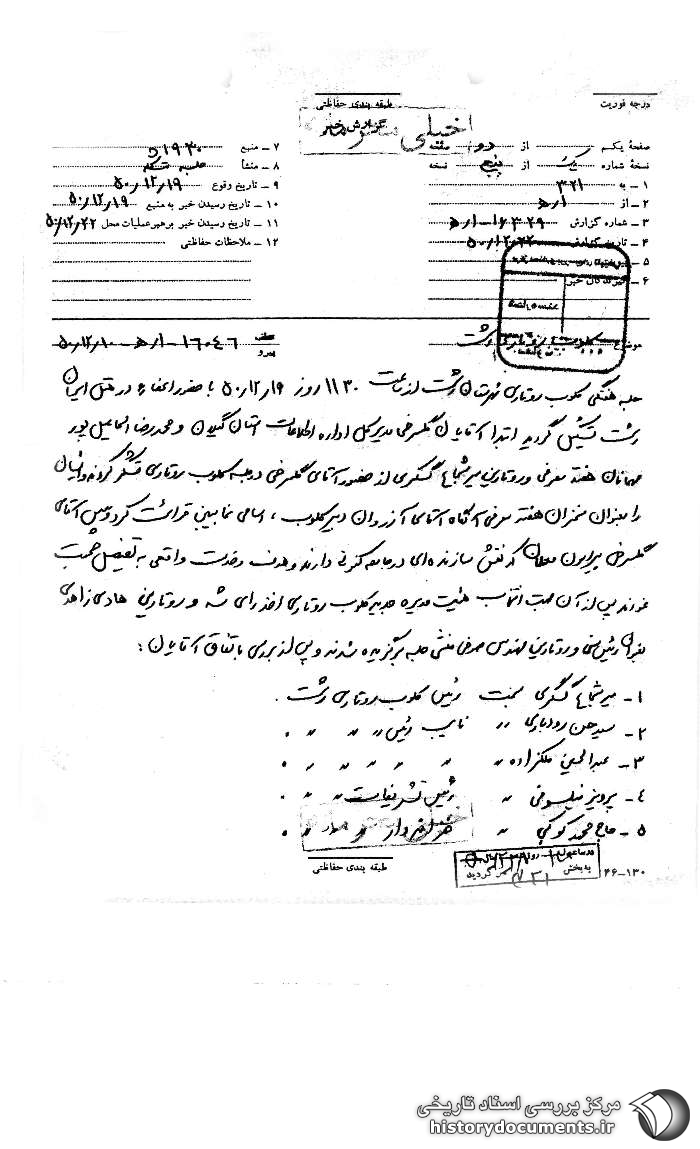 درجه فوریت
طبقه بندی حفاظتی
گزارش خبر
خیلی محرمانه
صفحه یکم از دو صفحه
نسخه شماره یک از پنج نسخه
۱ – به ۳۲۱
۲ – از ۱ ه‍
۳ – شماره گزارش ۱۶۳۲۹ – ۱ ه‍
۴ – تاریخ گزارش ۵۰/۱۲/۲۲
۵ –
۶ –
۷ – منبع ۵۱۹۳۰
۸ – منشأ جلسه متشکله
۹ – تاریخ وقوع ۵۰/۱۲/۱۹
۱۰ – تاریخ رسیدن خبر به منبع ۵۰/۱۲/۱۹
۱۱ – تاریخ رسیدن خبر برهبر عملیات محل ۵۰/۱۲/۲۲
۱۲ – ملاحظات حفاظتی
موضوع کلوب روتاری رشت
عطف پیرو ۱۶۰۴۶ – ۱ ه‍ – ۵۰/۱۲/۱۰
جلسه هفتگی کلوب روتاری شهرستان رشت از ساعت ۱۱۳۰ روز ۵۰/۱۲/۱۹ با حضور اعضاء در هتل ایران
رشت تشکیل گردید ابتدا آقایان گلسرخی مدیرکل اداره اطلاعات استان گیلان و محمدرضا اسماعیل پور
مهمانان هفته معرفی و روتارین میرشجاع عسگری از حضور آقای گلسرخی در جلسه کلوب روتاری تشکر کرده و ایشان
را بعنوان سخنران هفته معرفی آنگاه آقای آزروان دبیر کلوب ، اسامی غایبین قرائت کرد و سپس آقای
گلسرخی پیرامون معلمان که نقش سازنده ای در جامعه کنونی دارند و هدف و خدمت واقعی به تفصیل صحبت
نمودند پس از آن جهت انتخاب هیئت مدیره جدید کلوب روتاری اخذ رای شد و روتارین هادی زاهدی
بعنوان رئیس سنی و روتارین مهندس صوفی منشی جلسه برگزیده شدند و پس از بررسی باتفاق آقایان :
۱ – میرشجاع عسگری بسمت رئیس کلوب روتاری رشت .
۲ – سیدحسن رودباری " نایب رئیس " " " .
۳ – عبدالحسین ملکزاده " " " " " " .
۴ – پرویز فیلسوفی " رئیس تشریفات " " .
۵ – حاج محمد کوکبی " خزانه دار " " " .
طبقه بندی حفاظتی
۱۳۰–۴۶
به بخش ۳۲۱ گردید
مرکز بررسی اسناد تاریخی
historydocuments.ir